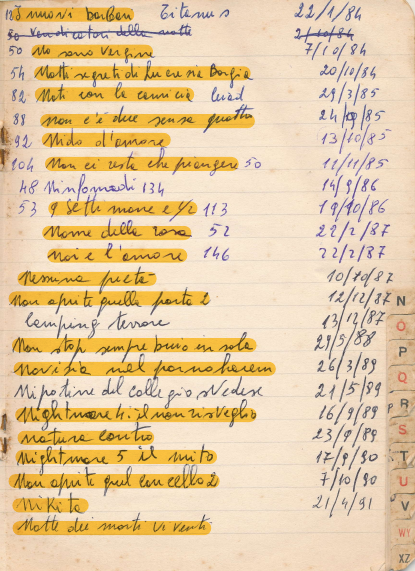 125 I nuovi barbari Titanus 22/1/84
50 Vendicatori della notte 2/10/84
50 No sono vergine 7/10/84
54 Notti segrete di Lucresia Borgia 20/10/84
82 Noti con la camicia 29/3/85
88 non c'é due sensa quattro 24/9/85
92 Nido d'amore 13/10/85
104 Non ci resta che piangere 50 11/11/85
48 Ninfomadi 134 14/9/86
53 9 settimane e ½ 113 19/10/86
Nome della rosa 52 22/2/87
noi e l'amore 146 22/2/87
Nessuna pietà 10/10/87
Non aprite quella porta 2 12/12/87
Camping terrore 13/12/87
Non stop sempre buio in sala 29/5/88
Novisia nel pornoharem 26/3/89
Nipotine del collegio svedese 21/5/89
Nightmare 4: il non risveglio 16/9/89
natura contro 23/9/89
Nightmare 5 il mito 17/9/90
Non aprite quel cancello 2 7/10/90
Nikita 21/4/91
Notte dei morti viventi
N
O
P
Q
R
S
T
U
V
WY
XZ